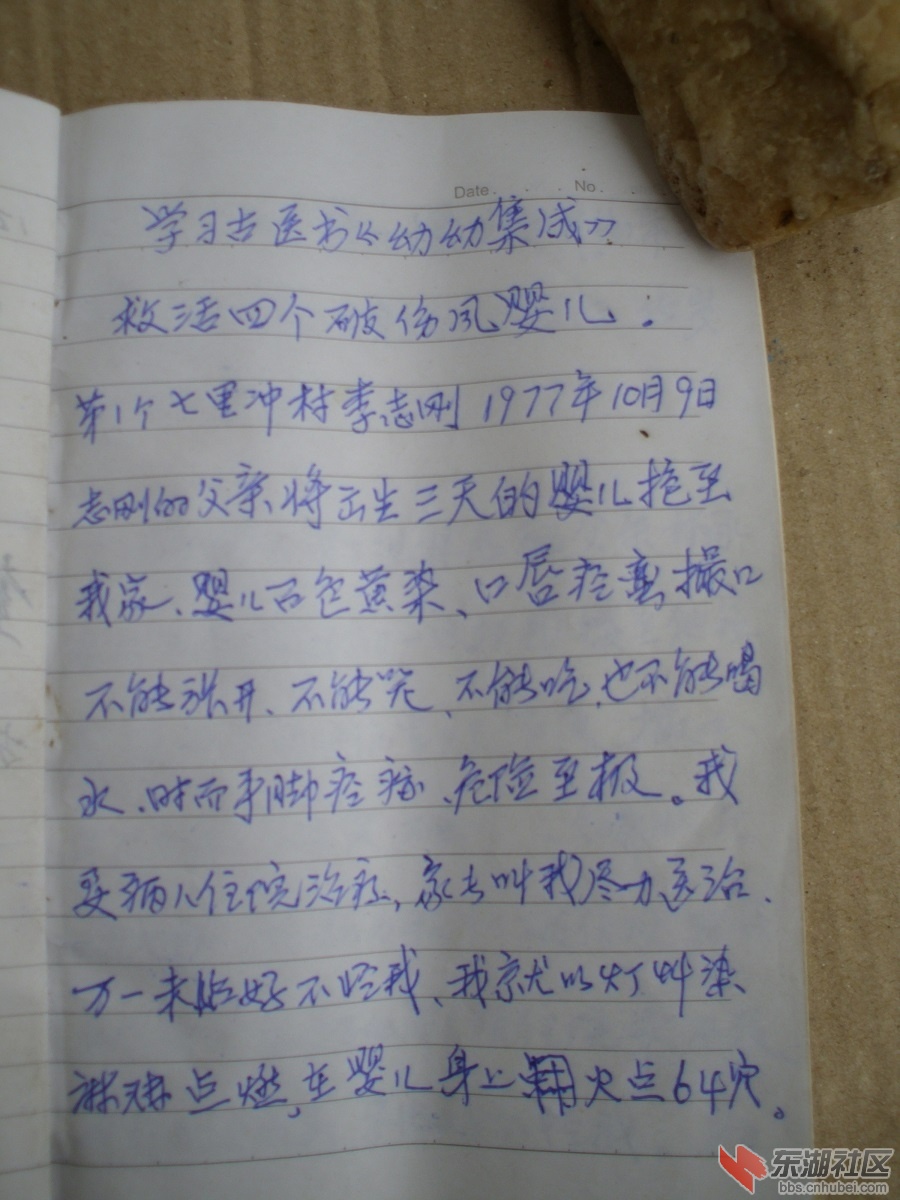 Date . . . No. .
学习古医书《幼幼集成》
救活四个破伤风婴儿.
第1个七里冲村李志刚1977年10月9日
志刚的父亲将出生三天的婴儿抱至
我家、婴儿面色黄染、口唇痉挛,撮口
不能张开、不能哭、不能吃、也不能喝
水、时而手脚痉挛、危险至极。我
要病人住院治疗,家长叫我尽力医治.
万一未治好不怪我、我就以灯草染
麻油点燃,在婴儿身上用火点64穴。
东湖社区
bbs.cnhubei.com